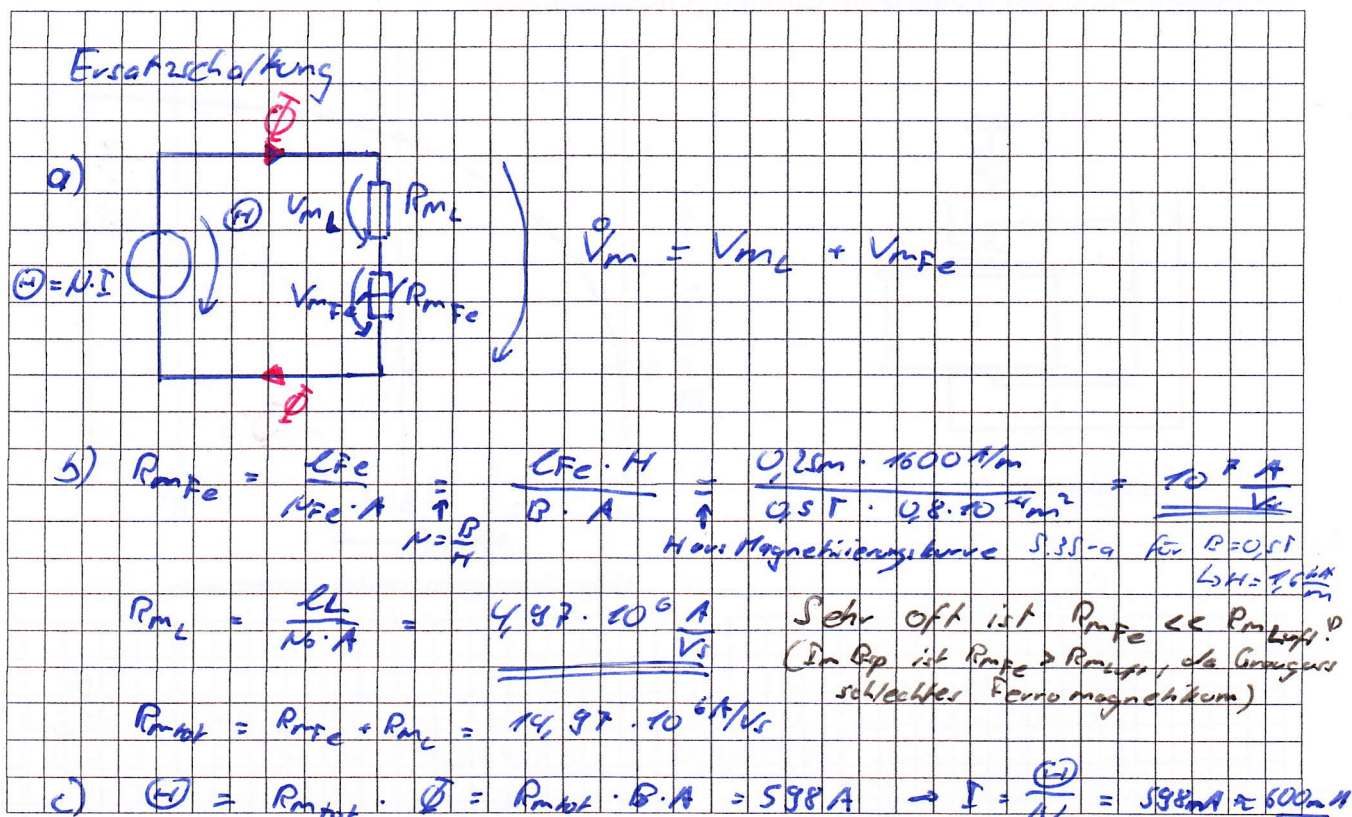 Ersatzschaltung
Φ
a)
Θ V_mL R_mL
V̊_m = V_mL + V_mFe
Θ = N·I
V_mFe R_mFe
Φ
b) R_mFe = lFe / (μFe · A) = (lFe · H) / (B · A) = (0,25m · 1600 A/m) / (0,5T · 0,8·10⁻⁴m²) = 10⁷ A/Vs
μ = B/H
H aus Magnetisierungskurve S.35-a für B=0,5T
↳ H = 1,6 kA/m
R_mL = lL / (μ0 · A) = 4,97 · 10⁶ A/Vs
Sehr oft ist R_mFe << R_mLuft!
(Im Bsp ist R_mFe > R_mLuft, da Grauguss
schlechtes Ferromagnetikum)
R_mtot = R_mFe + R_mL = 14,97 · 10⁶ A/Vs
c) Θ = R_mtot · Φ = R_mtot · B · A = 598 A → I = Θ/N = 598mA ≈ 600mA